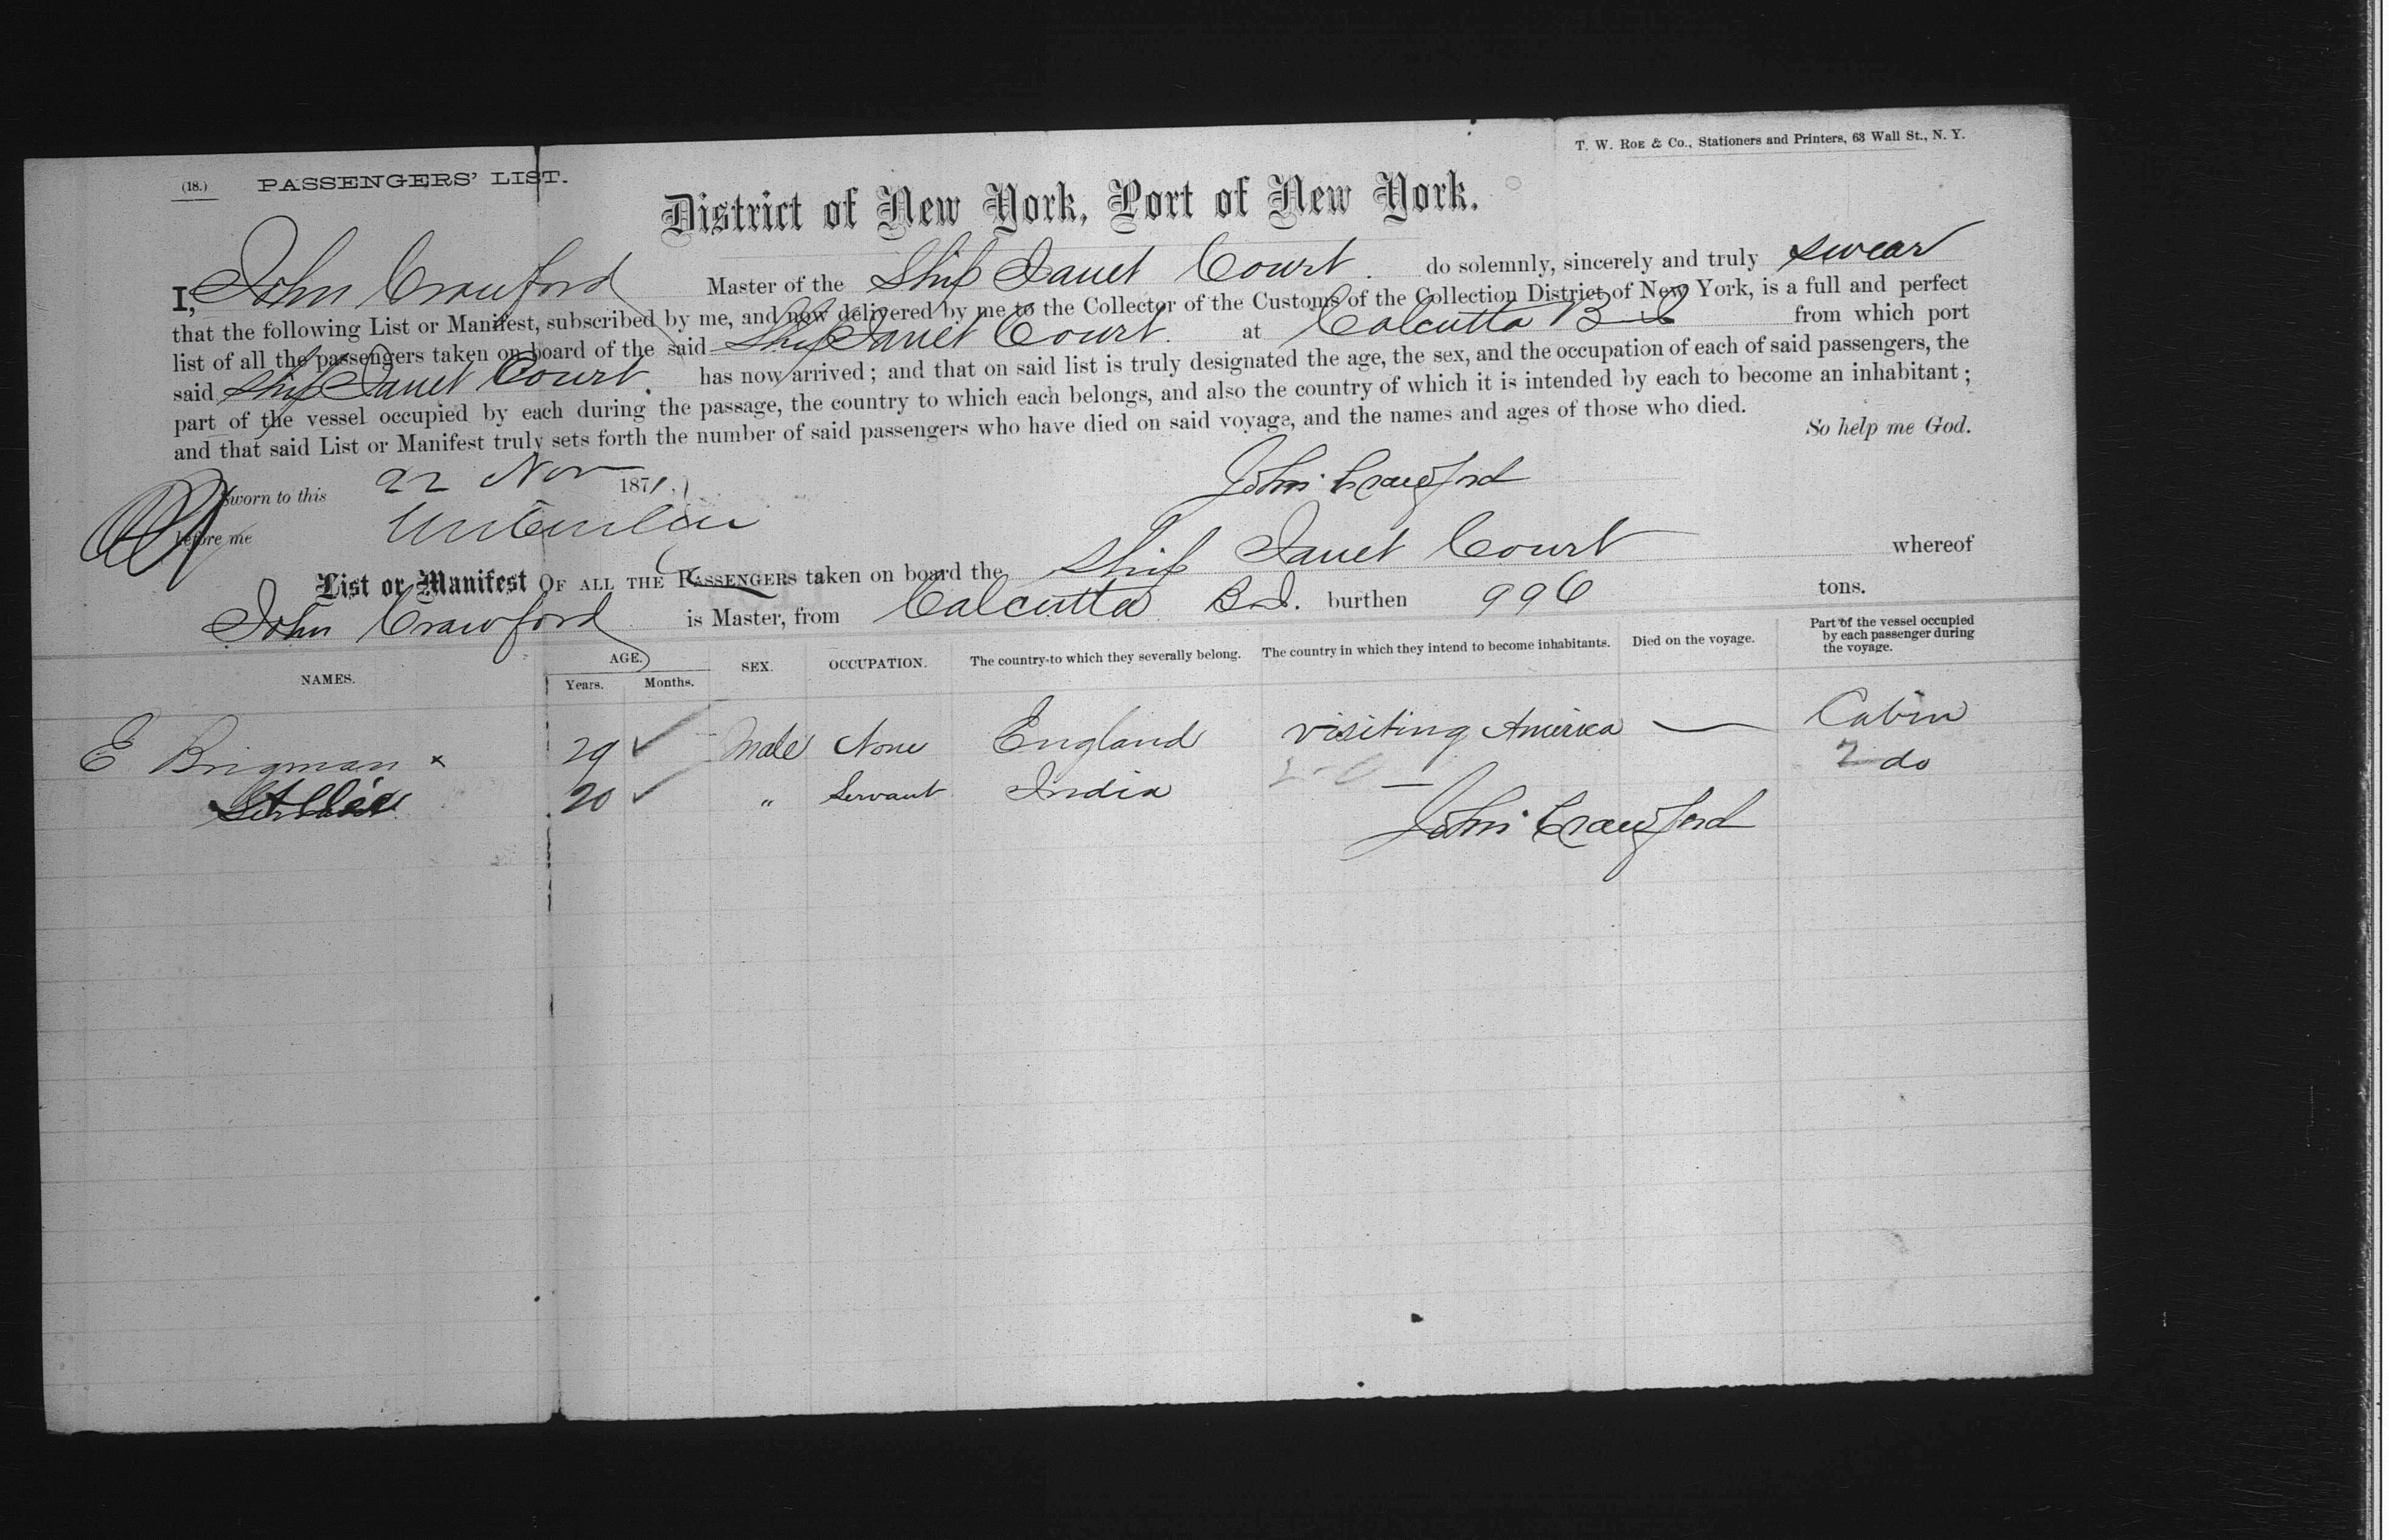 T. W. ROE & Co., Stationers and Printers, 63 Wall St., N. Y.
(18.) PASSENGERS' LIST.
District of New York, Port of New York.
I, John Crawford Master of the Ship Janet Court. do solemnly, sincerely and truly swear
that the following List or Manifest, subscribed by me, and now delivered by me to the Collector of the Customs of the Collection District of New York, is a full and perfect
list of all the passengers taken on board of the said Ship Janet Court. at Calcutta B I from which port
said Ship Janet Court. has now arrived; and that on said list is truly designated the age, the sex, and the occupation of each of said passengers, the
part of the vessel occupied by each during the passage, the country to which each belongs, and also the country of which it is intended by each to become an inhabitant;
and that said List or Manifest truly sets forth the number of said passengers who have died on said voyage, and the names and ages of those who died.
So help me God.
Sworn to this 22 Nov 1871.
John Crawford
before me
List or Manifest OF ALL THE PASSENGERS taken on board the Ship Janet Court whereof
John Crawford is Master, from Calcutta B I. burthen 996 tons.
NAMES. AGE. Years. Months. SEX. OCCUPATION. The country to which they severally belong. The country in which they intend to become inhabitants. Died on the voyage. Part of the vessel occupied by each passenger during the voyage.
E Brigman x 29 ✓ Male None England visiting America — Cabin
20 ✓ " Servant India — 2 do
John Crawford